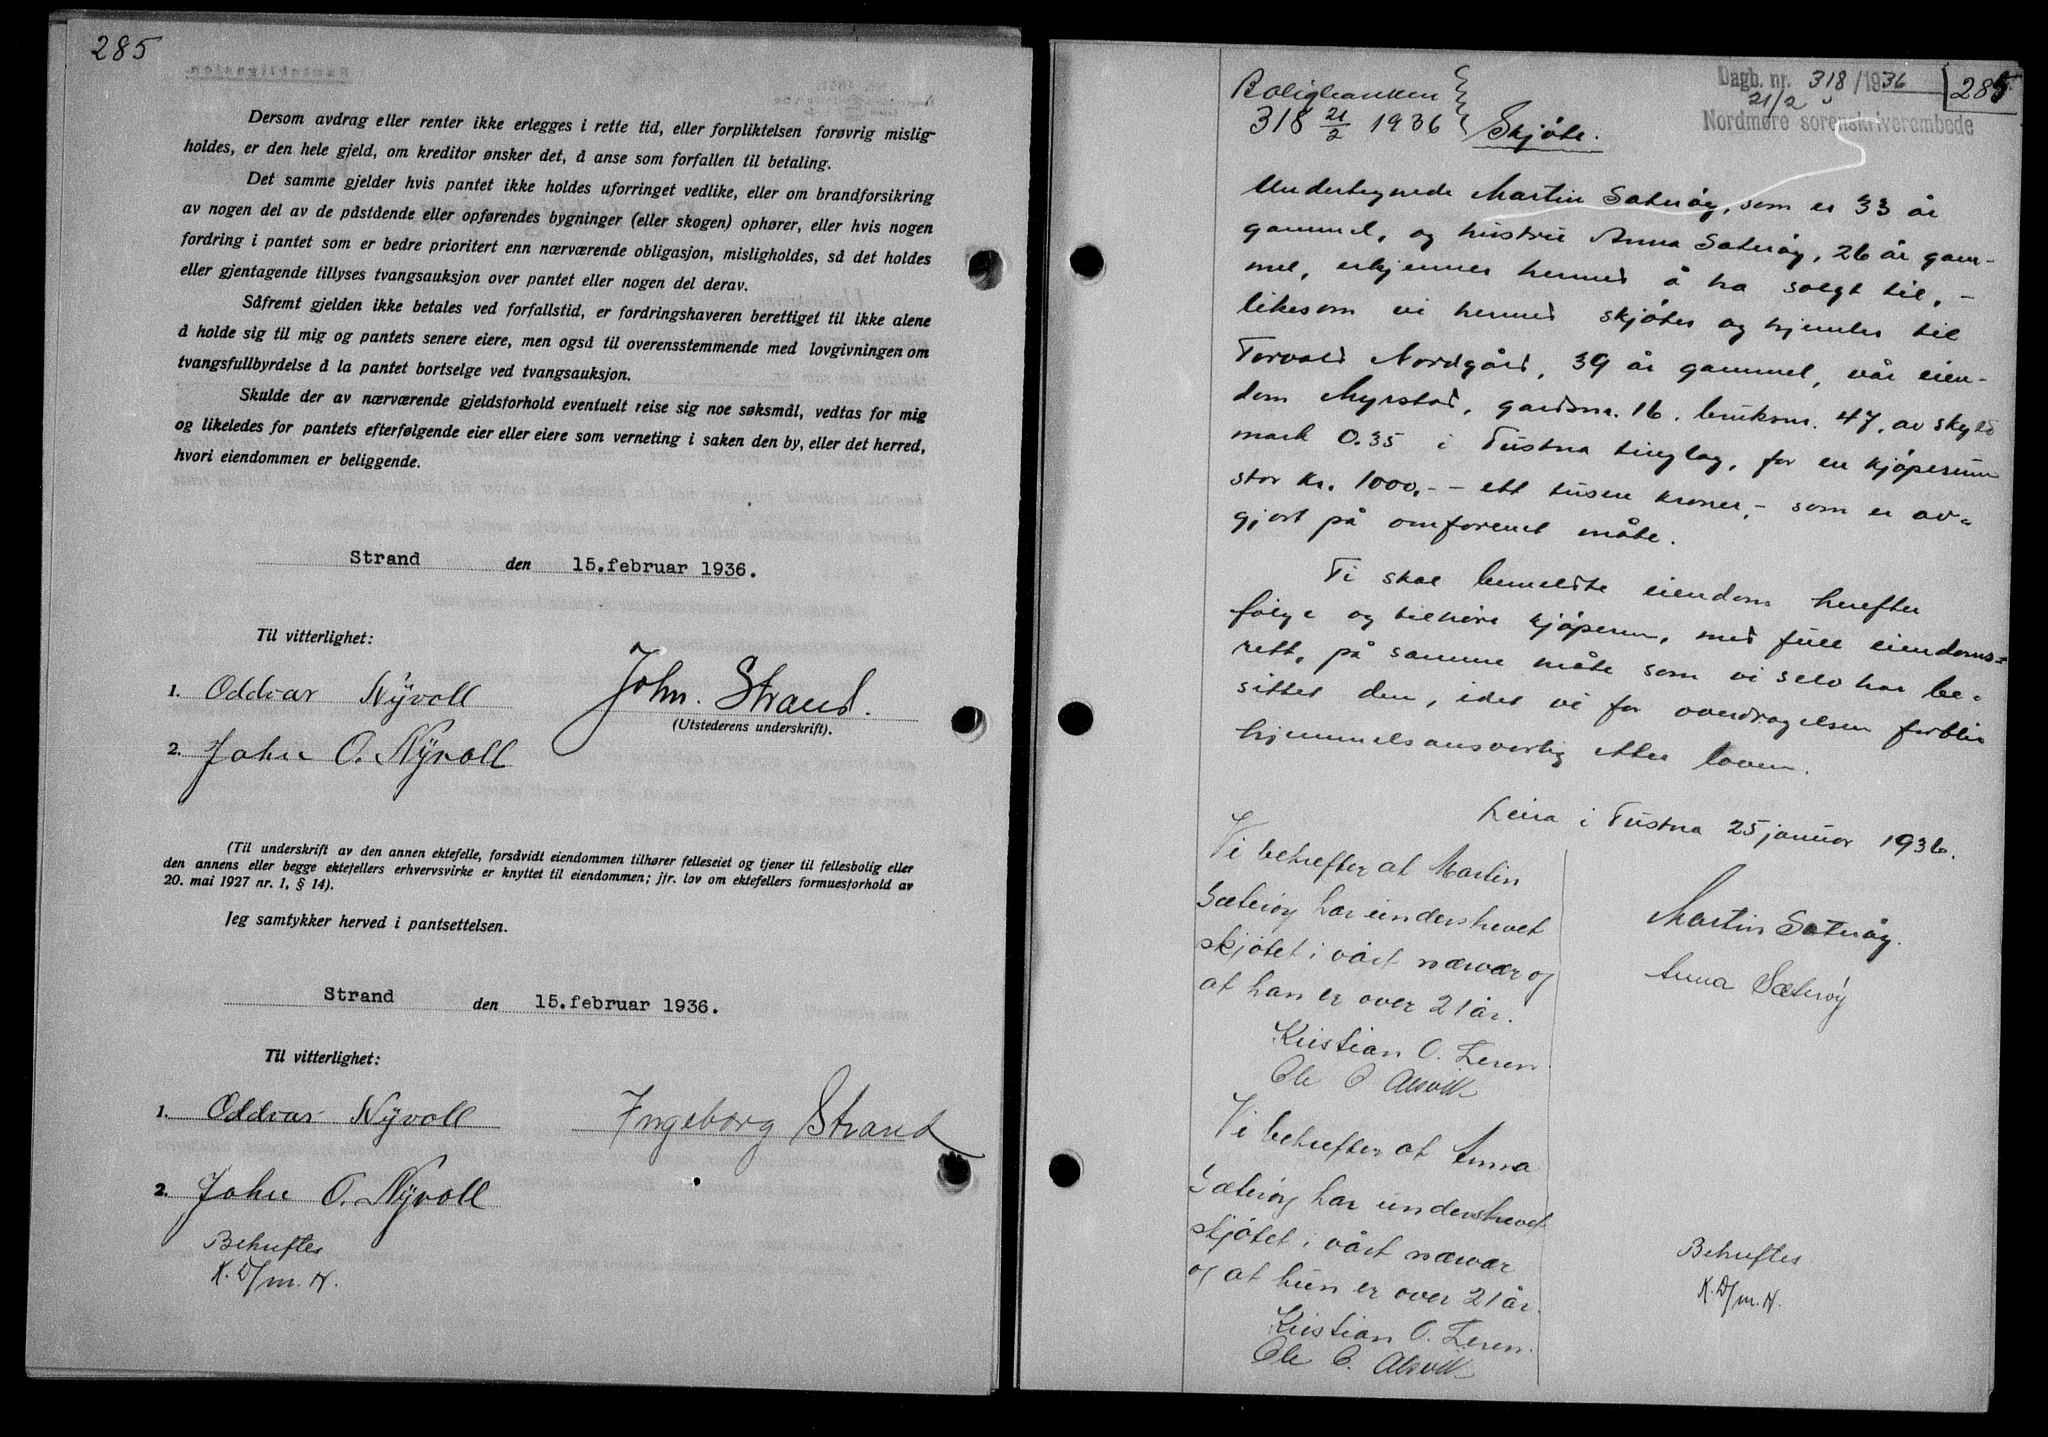 285
Dersom avdrag eller renter ikke erlegges i rette tid, eller forpliktelsen forøvrig mislig-
holdes, er den hele gjeld, om kreditor ønsker det, å anse som forfallen til betaling.
Det samme gjelder hvis pantet ikke holdes uforringet vedlike, eller om brandforsikring
av nogen del av de påstående eller opførendes bygninger (eller skogen) ophører, eller hvis nogen
fordring i pantet som er bedre prioritert enn nærværende obligasjon, misligholdes, så det holdes
eller gjentagende tillyses tvangsauksjon over pantet eller nogen del derav.
Såfremt gjelden ikke betales ved forfallstid, er fordringshaveren berettiget til ikke alene
å holde sig til mig og pantets senere eiere, men også til overensstemmende med lovgivningen om
tvangsfullbyrdelse å la pantet bortselge ved tvangsauksjon.
Skulde der av nærværende gjeldsforhold eventuelt reise sig noe søksmål, vedtas for mig
og likeledes for pantets efterfølgende eier eller eiere som verneting i saken den by, eller det herred,
hvori eiendommen er beliggende.
Strand den 15.februar 1936.
Til vitterlighet:
1. Oddvar Nÿvoll
John. Strand.
(Utstederens underskrift).
2. John O. Nÿvoll
(Til underskrift av den annen ektefelle, forsåvidt eiendommen tilhører felleseiet og tjener til fellesbolig eller
den annens eller begge ektefellers erhvervsvirke er knyttet til eiendommen; jfr. lov om ektefellers formuesforhold av
20. mai 1927 nr. 1, § 14).
Jeg samtykker herved i pantsettelsen.
Strand den 15.februar 1936.
Til vitterlighet:
1. Oddvar Nÿvoll
Ingeborg Strand
2. John O. Nÿvoll
Bekreftes
K. D/m. N.
Boligbanken
318 21/2 1936
Skjöte.
Dagb. nr. 318/1936
21/2
Nordmøre sorenskriverembede
285
Undertegnede Martin Sæteröy, som er 33 år
gammel, og hustru Anna Sæteröy, 26 år gam-
mel, erkjenner herved å ha solgt til, -
likesom vi herved skjöter og hjemler til
Torvald Nordgård, 39 år gammel, vår eien-
dom Myrstad, gardsnr. 16. bruksnr. 47, av skyld
mark 0.35 i Tustna tinglag, for en kjöpesum
stor kr. 1000.- - ett tusen kroner, - som er av-
gjort på omforenet måte.
Ti skal bemeldte eiendom herefter
fölge og tilhöre kjöperen, med full eiendoms-
rett, på samme måte som vi selv har be-
sittet den, idet vi for overdragelsen forblir
hjemmelsansvarlig etter loven.
Leira i Tustna 25 januar 1936.
Vi bekrefter at Martin
Sæteröy har underskrevet
skjötet i vårt nærvær og
at han er over 21 år.
Kristian O. Leren
Ole C. Alsvik
Martin Sæteröy.
Anna Sæteröy
Vi bekrefter at Anna
Sæteröy har underskrevet
skjötet i vårt nærvær
og at hun er over 21 år.
Kristian O. Leren.
Ole C. Alsvik
Bekreftes
K. D/m. N.